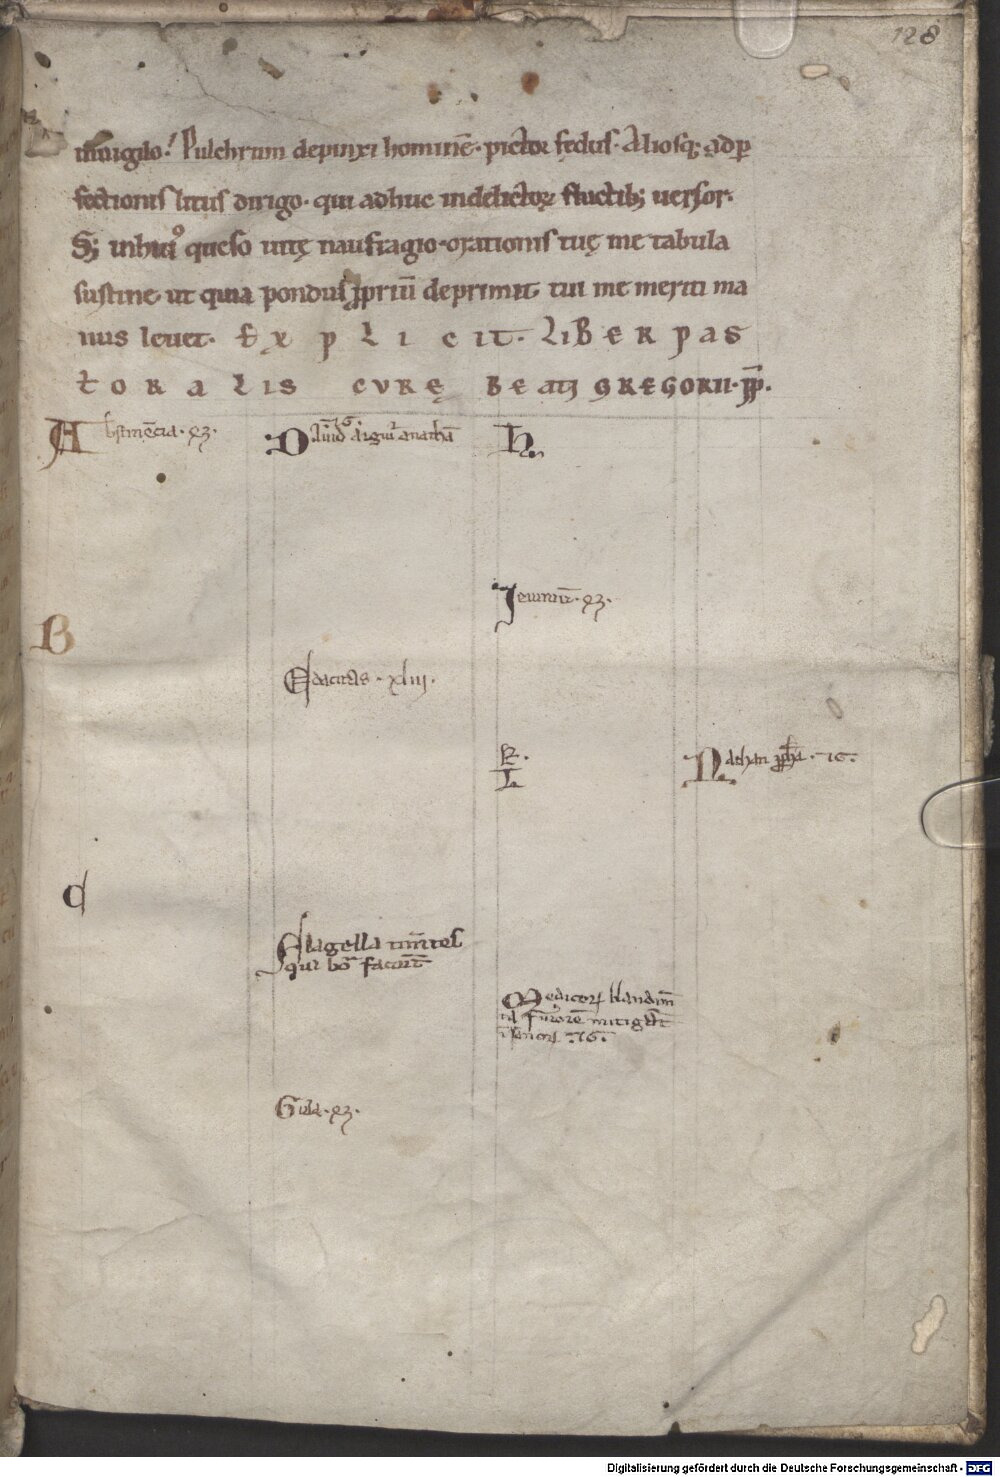 128
inuigilo. Pulchrum depinxi hominē. pictor fedus. Aliosq; ad p̲
fectionis litus dirigo. qui adhuc in delictoꝝ fluctib; uersor.
S; in hui⁹ queso uitę naufragio. orationis tuę me tabula
sustine. ut quia pondus ꝓpriū deprimit. tui me meriti ma
nus leuet. EXPLICIT. LIBER PAS
TORALIS CVRĘ BEATI GREGORII. PP̄.
Abstinēcia. 93.
Dauid arguit᷑ a nathā
76
H.
Ieiuniū. 93.
B
Edacitas. xliij.
K.
L.
Nathan ꝓph̄a. 76.
C
Flagella timētes
qui bō faciūt
Medicoꝝ blandimē
tis furorē mitigāt
īsanoꝝ. 76.
Gula. 93.
Digitalisierung gefördert durch die Deutsche Forschungsgemeinschaft - DFG